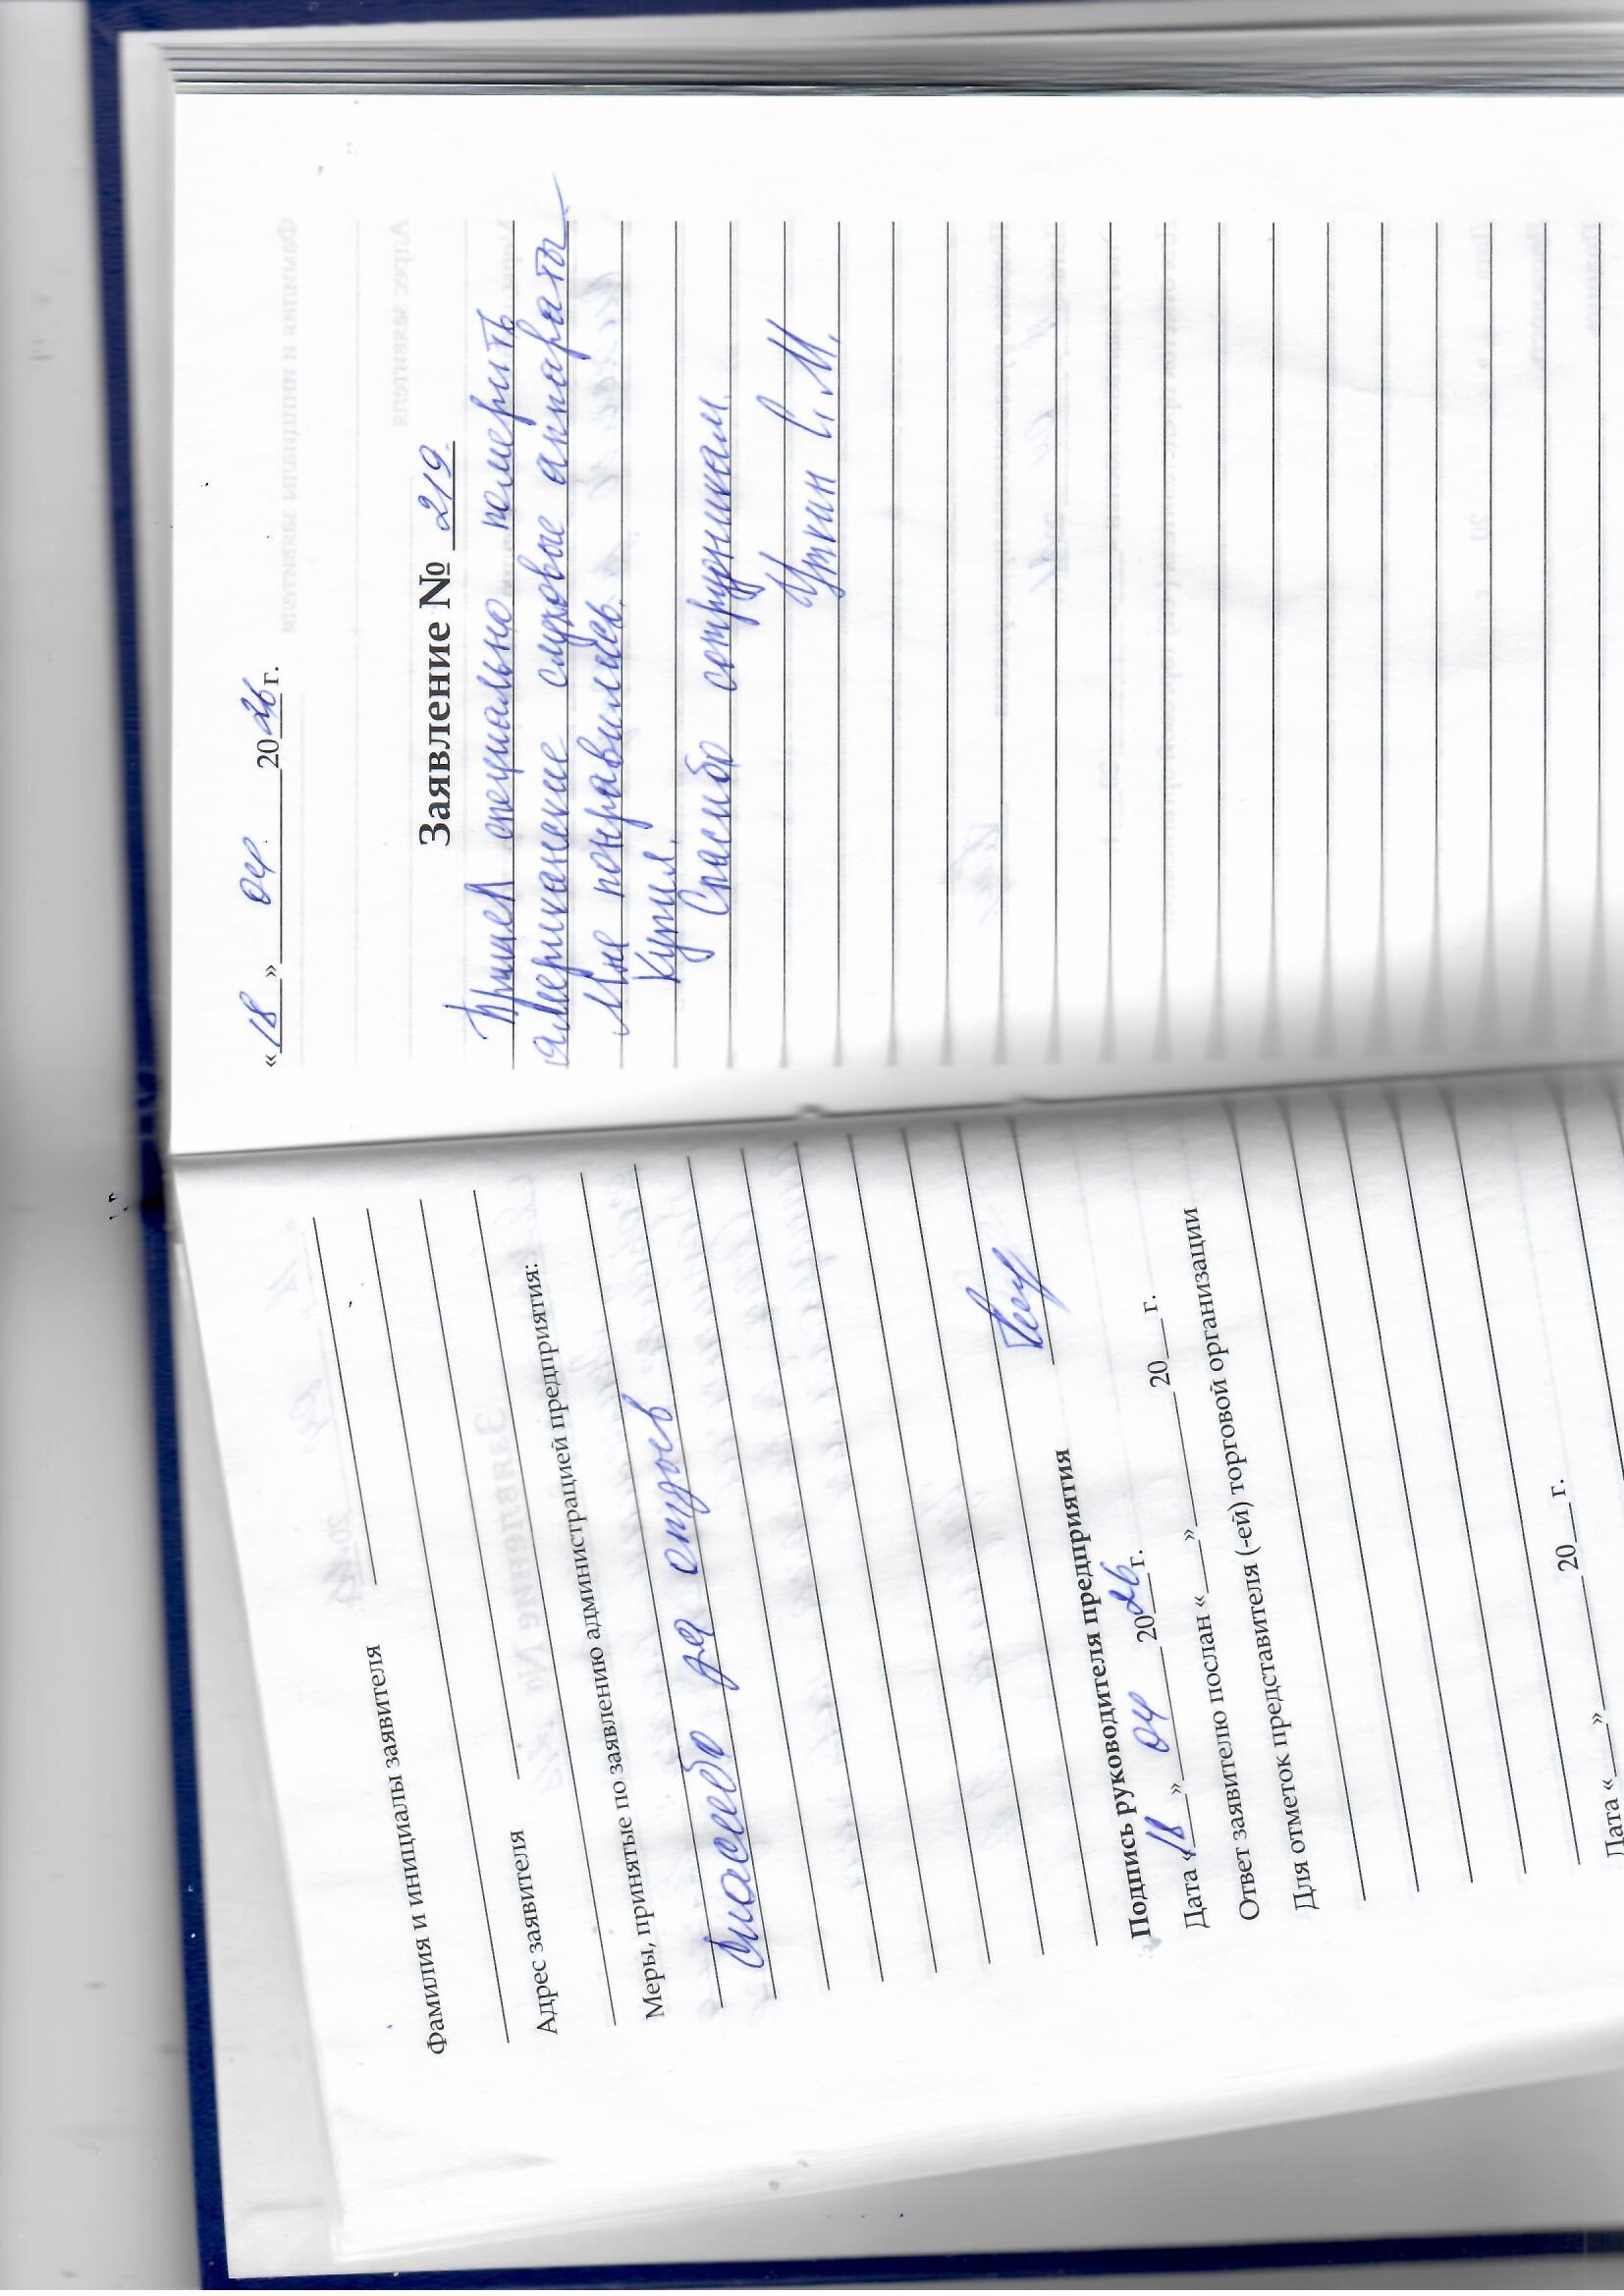 Фамилия и инициалы заявителя
Адрес заявителя
Меры, принятые по заявлению администрацией предприятия:
Спасибо за отзыв
Подпись руководителя предприятия
Дата «18» 04 2026 г.
Ответ заявителю послан «___» ______ 20__ г.
Для отметок представителя (-ей) торговой организации
Дата «___» ______ 20__ г.
«18» 04. 2026 г.
Заявление № 219
Пришел специально померить
американские слуховые аппараты
Мне понравились.
Купил.
Спасибо сотрудникам.
Уткин С. М.